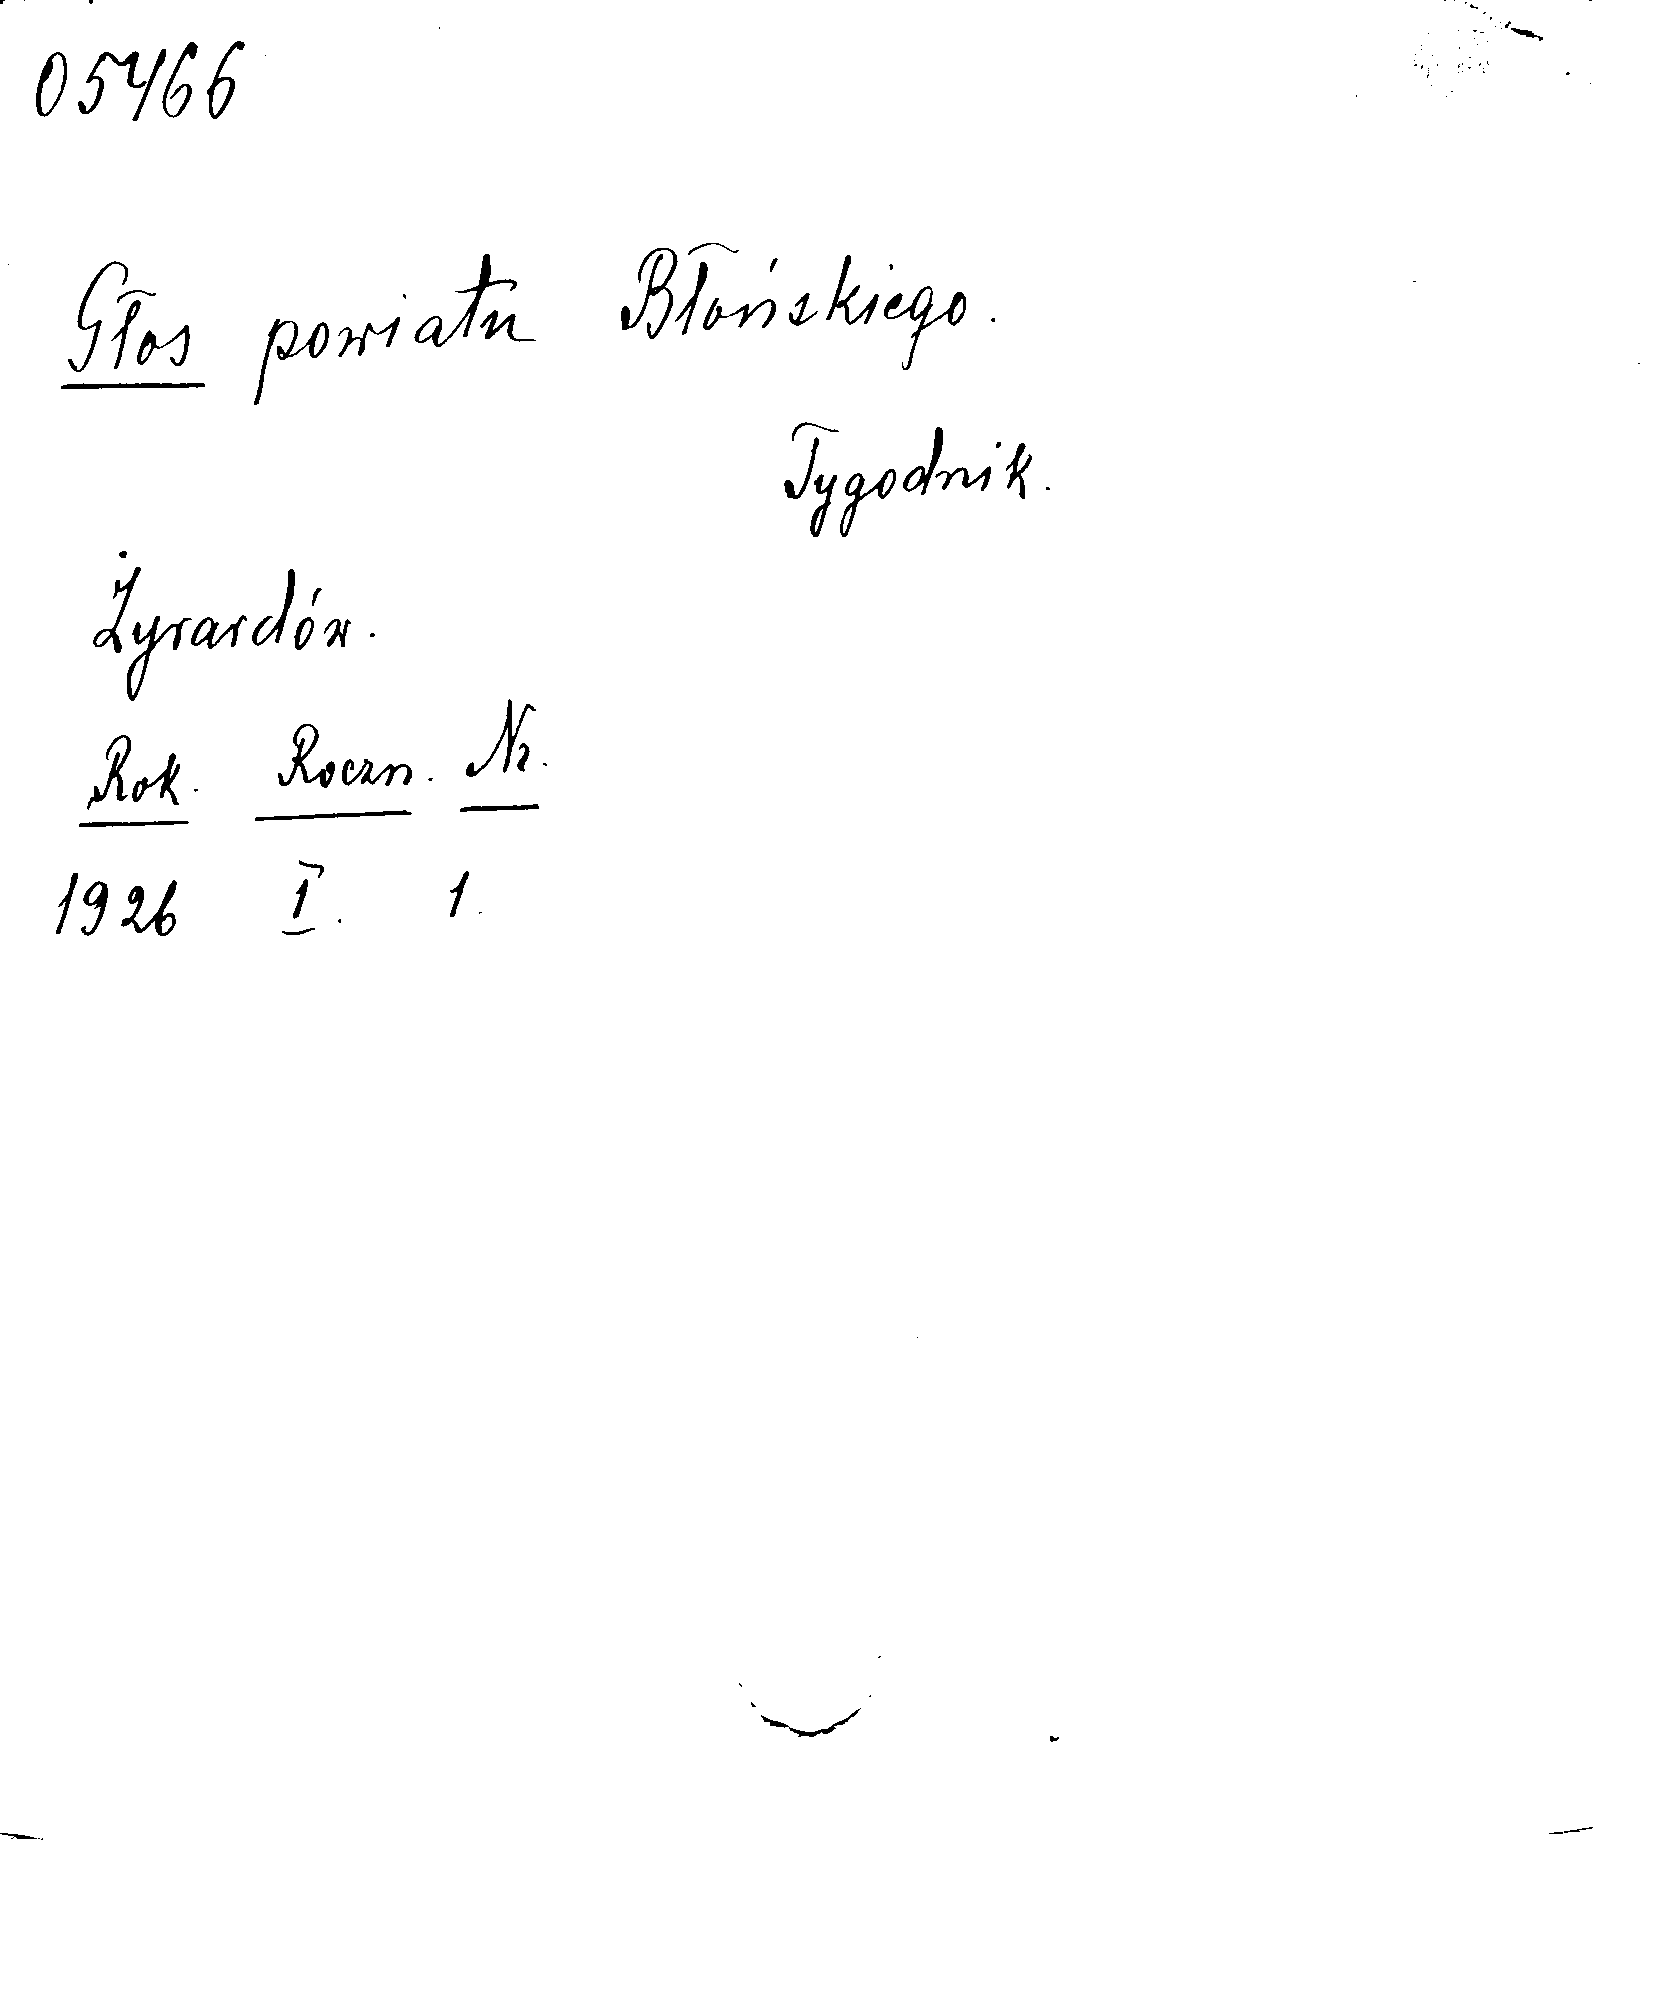 05466
Głos powiatu Błońskiego.
Tygodnik.
Żyrardów.
Rok. Roczn. Nr.
1926 I. 1.